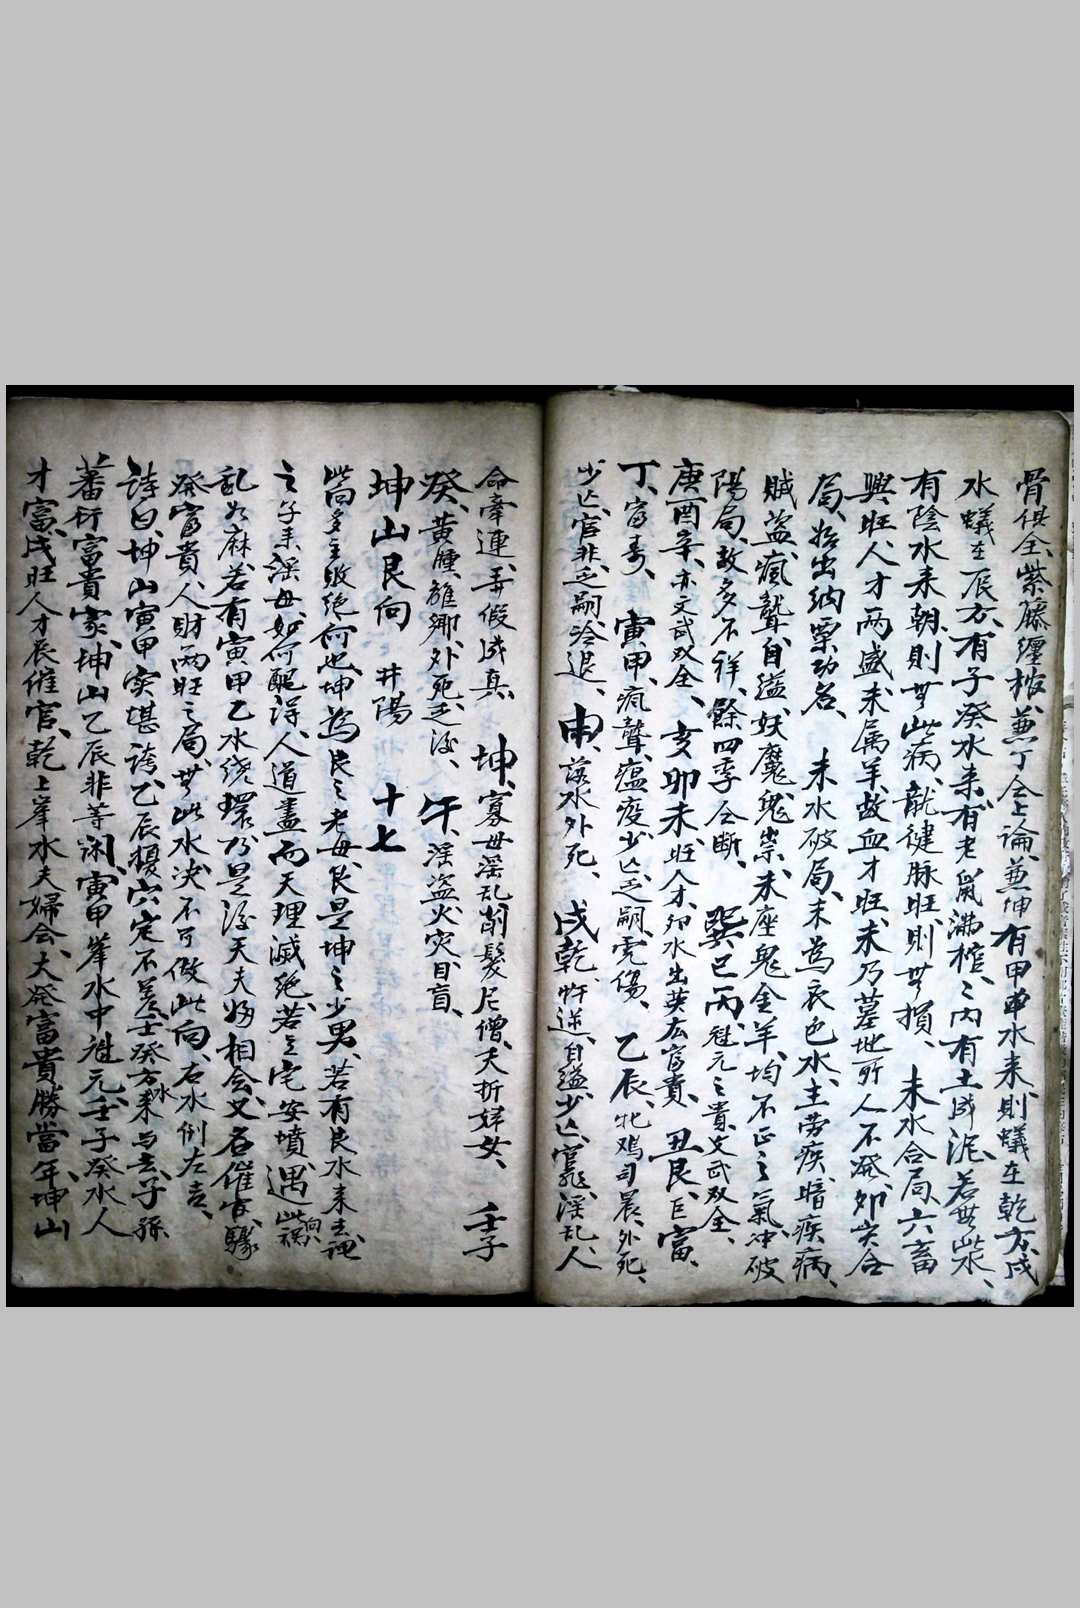 骨俱全、紫藤纏棺、兼丁仝上論、兼坤有甲卯水来、則蟻在乾方、戌
水蟻在辰方、有子癸水来、有老鼠滿棺、棺内有土成泥、若無此水、
有陰水来朝、則無此病、龍健脉旺則無損、未水合局、六畜
興旺、人才兩盛、未属羊、故血才旺、未乃墓地、所人不発、卯亥合
局、始出納粟功名、未水破局、未為衰色水、主劳疾、暗疾病、
賊盗、瘋聾、自縊、妖魔鬼祟、未座鬼金羊、均不正之氣、冲破
陽局、故多不祥、餘四季仝断、巽巳丙、魁元之貴、文武双全、
庚酉辛、亦文武双全、亥卯未旺人才、卯水出英広富貴、丑艮、巨富、
丁、富寿、寅甲、瘋聾、瘟疫、少亡、乏嗣、虎傷、乙辰、牝鳮司晨、外死、
少亡、官非、乏嗣冷退、申、落水外死、戌乾、忤逆、自縊、少亡、官非、淫乱、人
命牽連、弄假成真、坤、寡母淫乱、削髮尼僧、夭折妹女、壬子
癸、黄腫、離鄉、外死、乏後、午、淫盗、火灾、目盲、
坤山艮向 井陽 十七
此向多主敗絶、何也、坤為艮之老母、艮是坤之少男、若有艮水来去、謂
之子来淫母、如何配得、人道盡而天理滅絶、若立宅安墳、遇此向禍
乱如麻、若有寅甲乙水绕環、乃是後天夫婦相會、又名催官、驟
発富貴、人財兩旺之局、無此水决不可做此向、右水倒左吉、
詩曰、坤山寅甲实堪誇、乙辰擾穴定不差、壬癸方水来与去、子孫
蕃衍富貴家、坤山乙辰非等闲、寅甲峯水中魁元、壬子癸水人
才富、戌旺人才辰催官、乾上峯水夫婦會、大発富貴勝當年、坤山